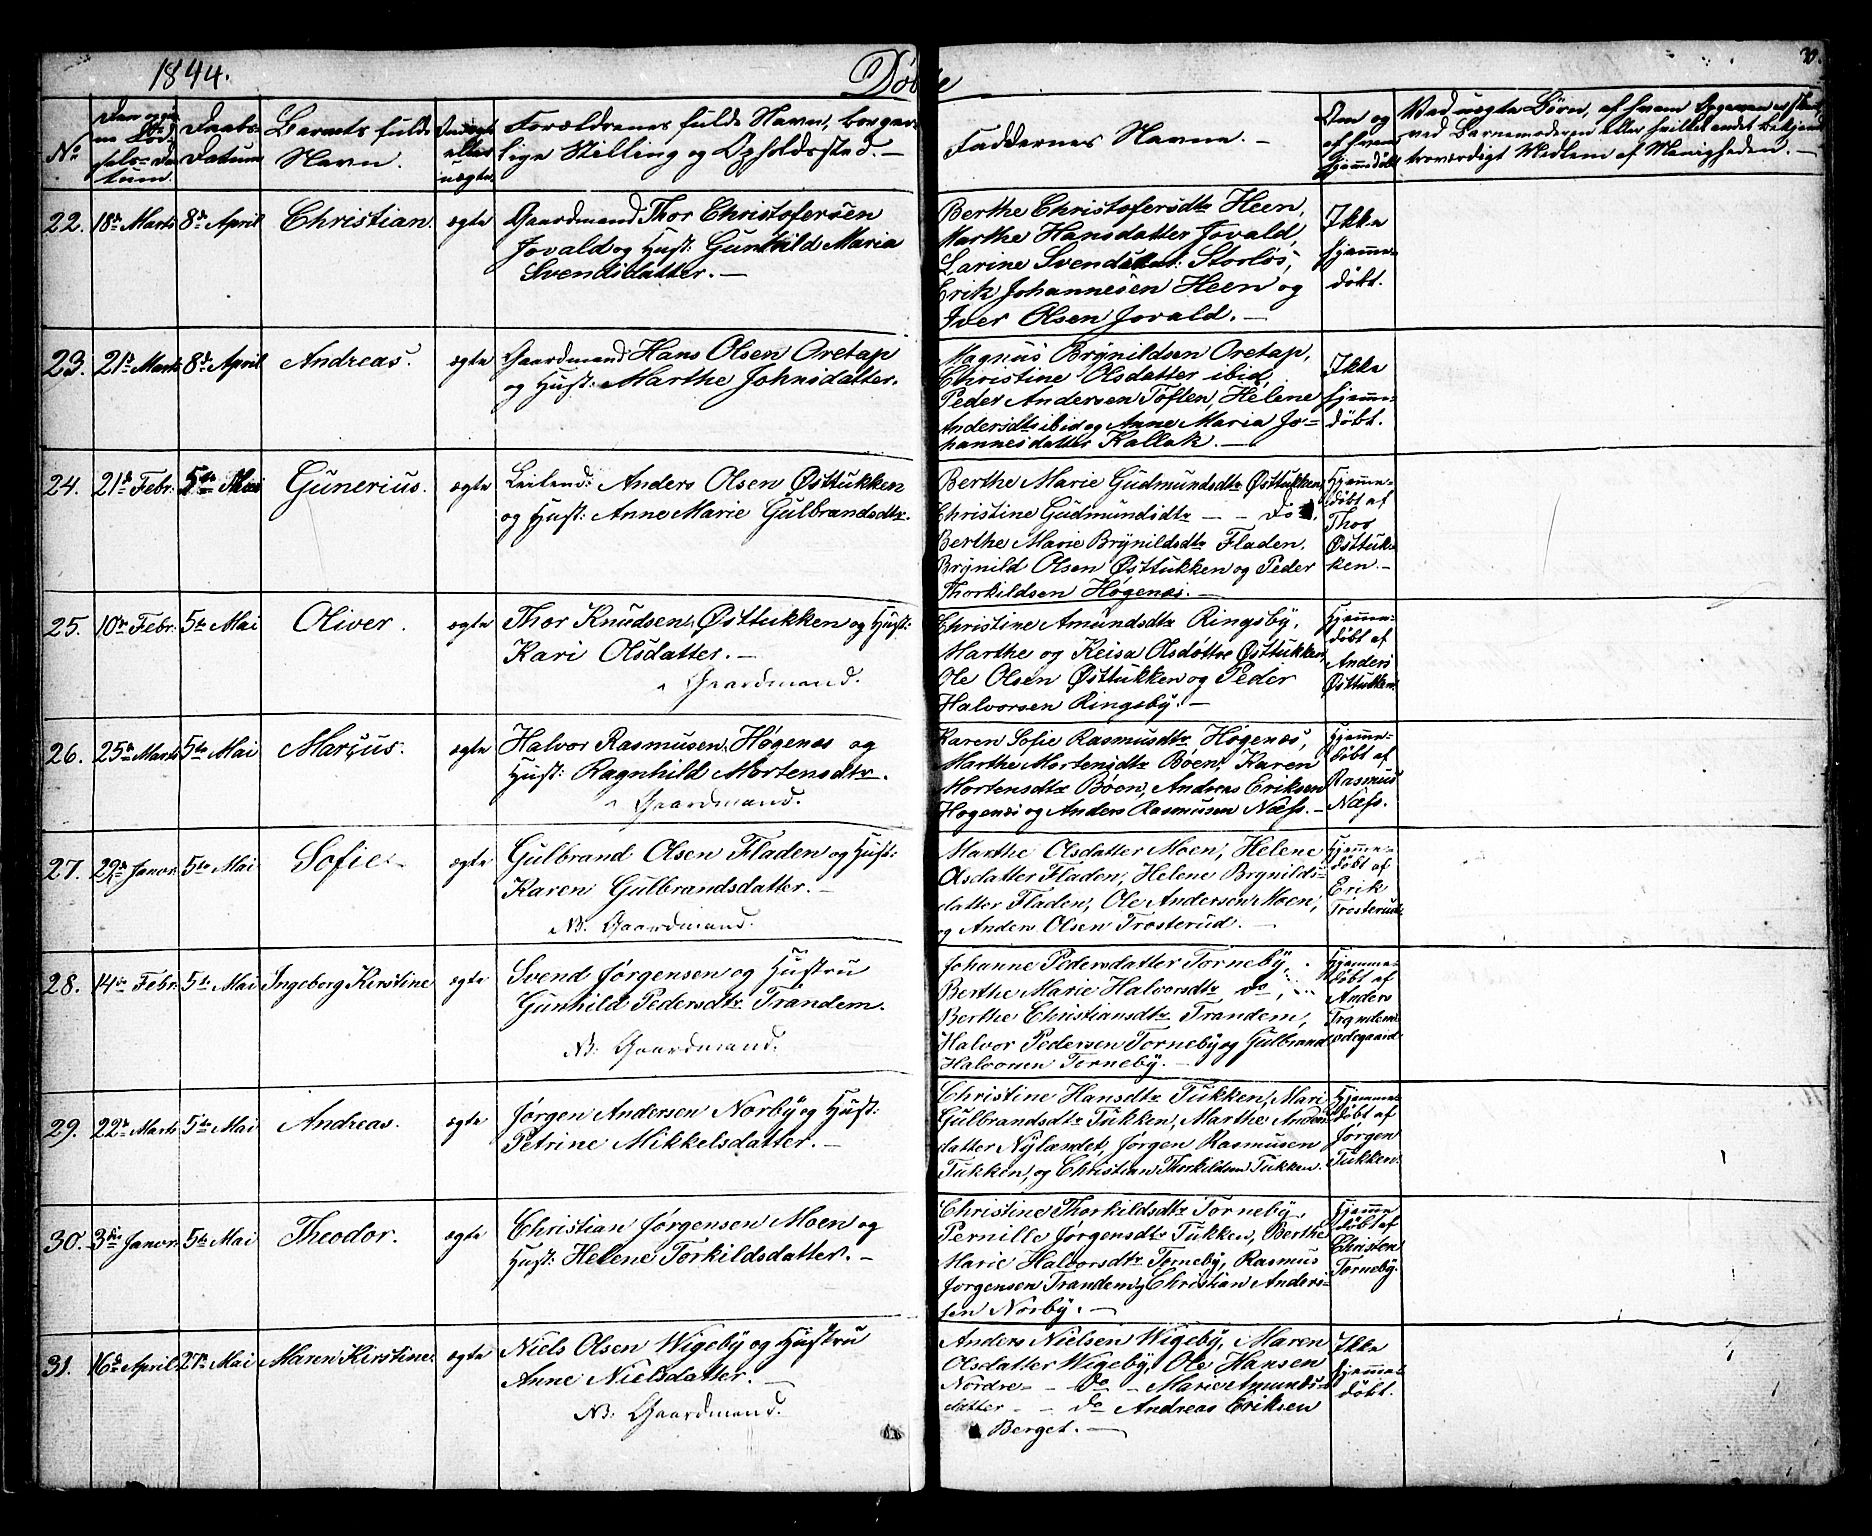 1844.
Døbte
No
Datum.
Daabs-
Datum
Barnets fulde
Navn.
eller
uægte
Forældrenes fulde Navn, borger-
lige Stilling og Opholdssted. —
Faddernes Navne. —
Om og
af hvem
hjemmedøbt
Ved uægte Børn, af hvem Opgaven er skeet,
ved Barnemoderen eller hvilket andet bekjendt
troværdigt Medlem af Menigheden. —
22. 18de Marts 8de April Christian. ægte
Gaardmand Thor Christofersen
Jovald og Hust: Gunhild Maria
Svendsdatter. —
Berthe Christofersdtr Heen,
Marthe Hansdatter Jovald,
Larine Svendsdat: Storløs,
Erik Johannesen Heen og
Iver Olsen Jovald. —
Ikke
hjemme-
døbt.
23. 21de Marts 8de April Andreas. ægte
Gaardmand Hans Olsen Oretap
og Hust: Marthe Johnsdatter.
Magnus Brynildsen Oretap,
Christine Olsdatter ibid,
Peder Andersen Toften, Helene
Andersdtr ibid og Anne Maria Jo-
hannesdatter Kallak. —
Ikke
hjemme-
døbt.
24. 21de Febr. 5te Mai Gunerius. ægte
Leilend: Anders Olsen Østtukken
og Hust: Anne Marie Gulbrandsdtr.
Berthe Marie Gudmundsdtr Østtukken,
Christine Gudmundsdtr — - do,
Berthe Marie Brynildsdtr Fladen,
Brynild Olsen Østtukken og Peder
Thorkildsen Høgenæs. —
Hjemme-
døbt af
Thor
Østtuk-
ken. —
25. 10de Febr. 5te Mai Oliver. ægte
Thor Knudsen Østtukken og Hust:
Kari Olsdatter. —
Gaardmand.
Christine Amundsdtr Ringsby,
Marthe og Keisa Olsdøttre Østtukken,
Ole Olsen Østtukken og Peder
Halvorsen Ringsby. —
Hjemme-
døbt af
Anders
Østtukken
26. 25de Marts 5te Mai Marius. ægte
Halvor Rasmusen Høgenæs og
Hust: Ragnhild Mortensdtr.
Gaardmand.
Karen Sofie Rasmusdtr Høgenæs,
Marthe Mortensdtr Bøen, Karen
Mortensdtr Bøen, Andreas Eriksen
Høgenæs og Anders Rasmusen Næss. —
Hjemme-
døbt af
Rasmus
Næss.
27. 29de Januar 5te Mai Sofie. ægte
Gulbrand Olsen Fladen og Hust:
Karen Gulbrandsdatter. —
NB. Gaardmand.
Marthe Olsdatter Moen, Helene
Olsdatter Fladen, Helene Brynilds-
datter Fladen, Ole Andersen Moen,
og Anders Olsen Trosterud. —
Hjemme-
døbt af
Erik
Trosterud.
28. 14de Febr. 5te Mai Ingeborg Kirstine ægte
Svend Jørgensen og Hustru
Gunhild Pedersdtr Trandem.
NB: Gaardmand.
Johanne Pedersdatter Torneby,
Berthe Marie Halvorsdtr do,
Berthe Christiansdtr Trandem,
Halvor Pedersen Torneby og Gulbrand
Halvorsen Torneby. —
Hjemme-
døbt af
Anders
Trandems
ødegaard
29. 22de Marts 5te Mai Andreas. ægte
Jørgen Andersen Norby og Hust:
Petrine Mikkelsdatter. —
Christine Hansdtr Tukken, Mari
Gulbrandsdtr Tukken, Marthe Anders
datter Nylændet, Jørgen Rasmusen
Tukken, og Christian Thorkildsen Tukken.
Hjemme-
døbt af
Jørgen
Tukken.
30. 3die Januar 5te Mai Theodor. ægte
Christian Jørgensen Moen og
Hust: Helene Torkildsdatter. —
Christine Thorkildsdtr Torneby,
Pernille Jørgensdtr Tukken, Berthe
Marie Halvorsdtr Torneby, Rasmus
Jørgensen Trandem og Christian Anders-
sen Norby. —
Hjemme
døbt af
Christen
Torneby.
31. 16de April 27de Mai Maren Kirstine. ægte
Niels Olsen Wigeby og Hustru
Anne Nielsdatter. —
NB: Gaardmand.
Anders Nielsen Wigeby, Maren
Olsdatter Wigeby, Ole Hansen
Nordre - - do - Marie Amunds-
datter - - do Andreas Eriksen
Berget. —
Ikke
hjemme-
døbt.